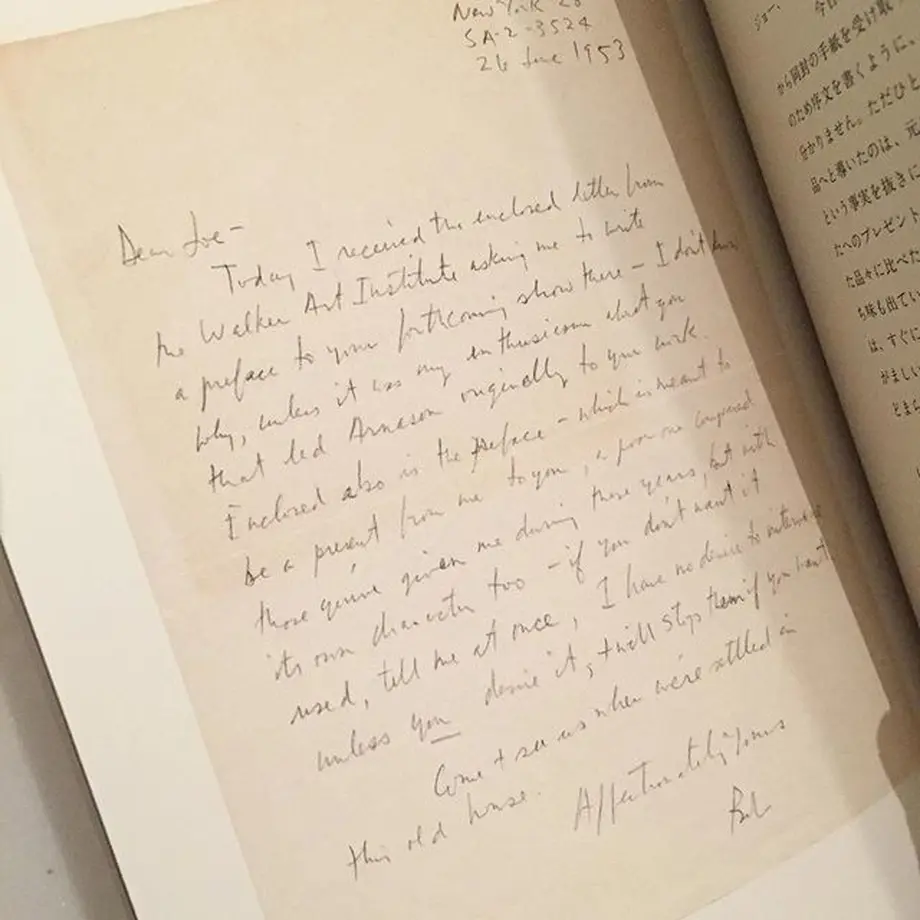 New York 28
SA-2-3524
26 June 1953
Dear Joe-
Today I received the enclosed letter from
the Walker Art Institute asking me to write
a preface to your forthcoming show there - I don't know
why, unless it was my enthusiasm about you
that led Arnason originally to your work.
Enclosed also is the preface - which is meant to
be a present from me to you, a poor one compared
those you've given me during those years, but with
its own character too - if you don't want it
used, tell me at once, I have no desire to intervene
unless you desire it, & will stop them if you want
Come & see us when we're settled in
this old house. Affectionately yours
Bob
ジョー、
今日
から同封の手紙を受け取
のため序文を書くように、
分かりません。ただひと
品へと導いたのは、元
という事実を抜きに
たへのプレゼント
た品々に比べた
ち味も出てい
は、すぐに
がましい
とまた